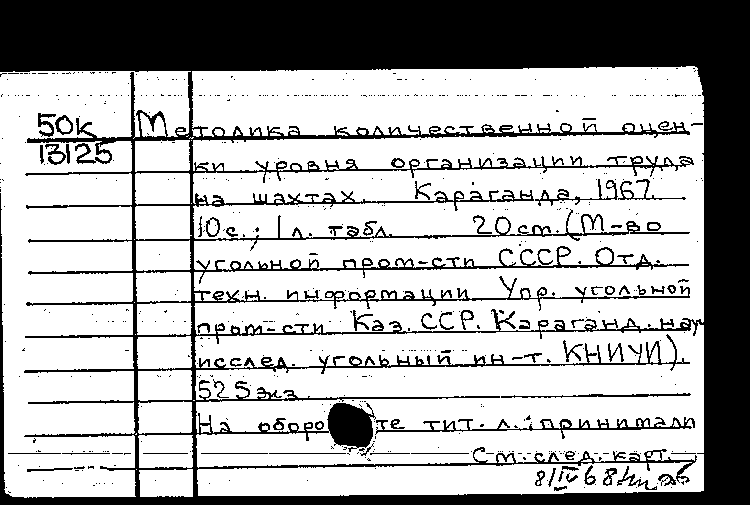 50К
13125
Методика количественной оцен-
ки уровня организации труда
на шахтах. Караганда, 1967.
10с.; 1 л. табл. 20 cm. (М-во
угольной пром-сти СССР. Отд.
техн. информации Упр. угольной
пром-сти Каз. ССР. Караганд. науч
исслед. угольный ин-т. КНИУИ).
525 экз.
На оборо те тит. л.: принимали
См. след. карт.
8/IV 68